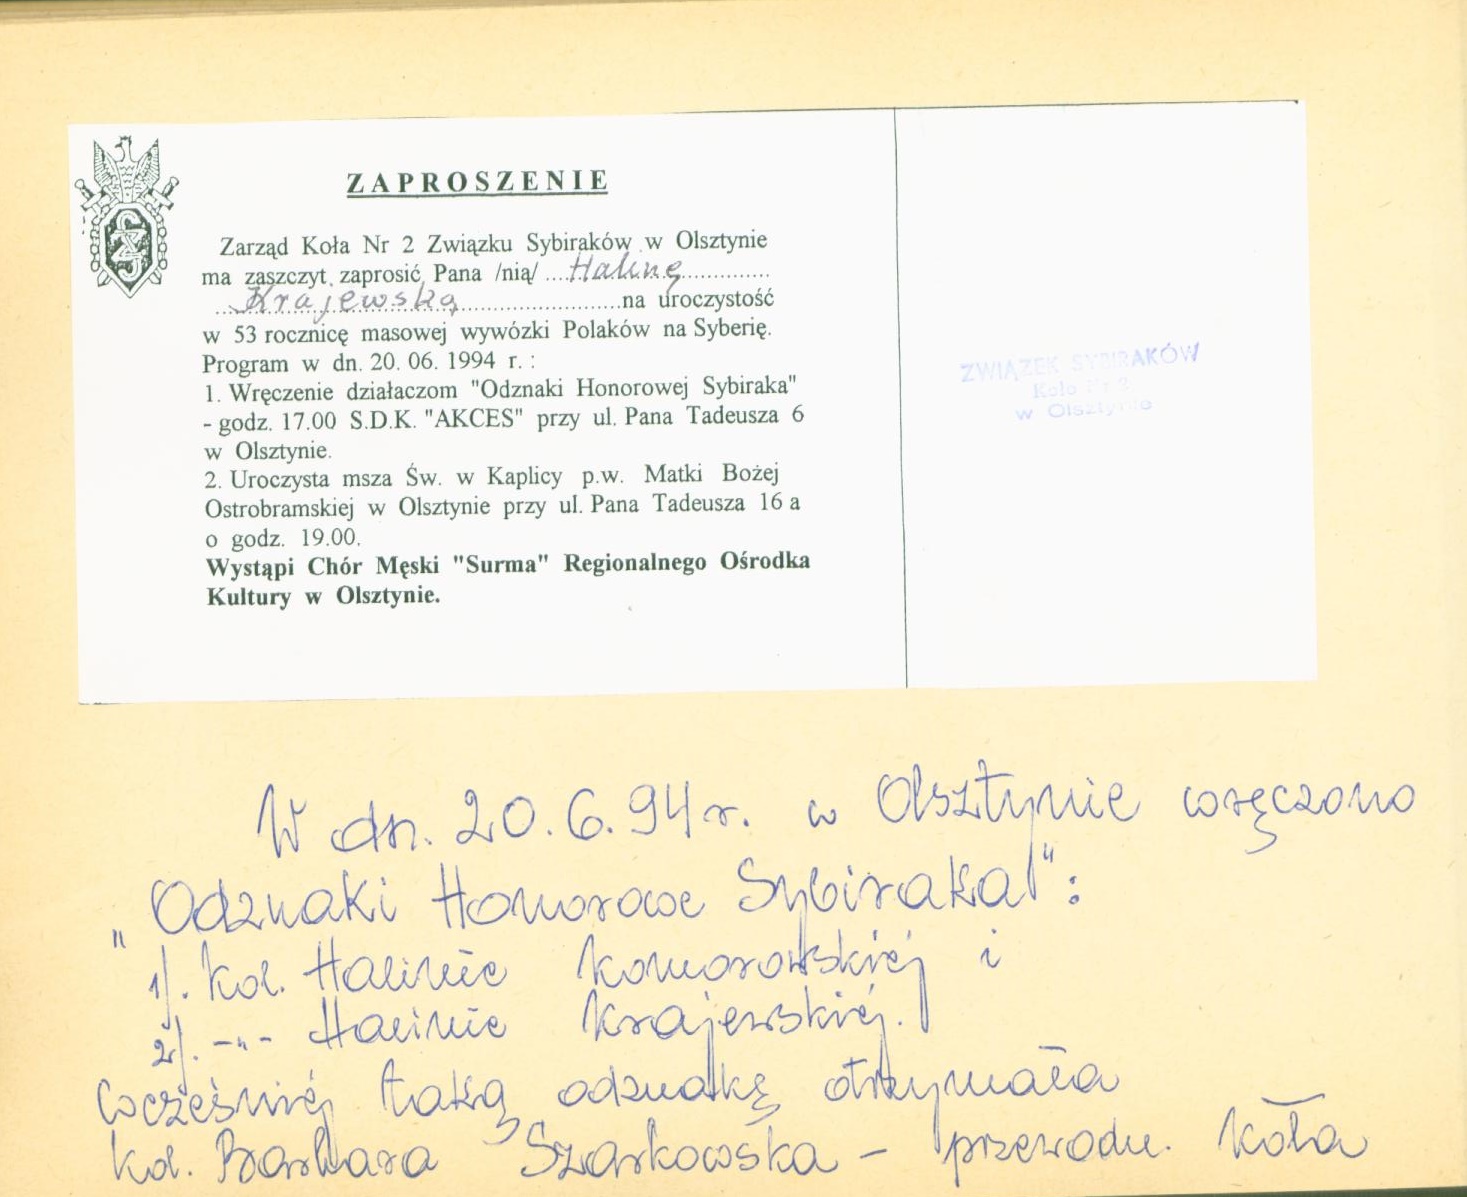 ZAPROSZENIE
Zarząd Koła Nr 2 Związku Sybiraków w Olsztynie
ma zaszczyt zaprosić Pana /nią/ ....Halinę..............
....Krajewską..........................na uroczystość
w 53 rocznicę masowej wywózki Polaków na Syberię.
Program w dn. 20. 06. 1994 r. :
1. Wręczenie działaczom "Odznaki Honorowej Sybiraka"
- godz. 17.00 S.D.K. "AKCES" przy ul. Pana Tadeusza 6
w Olsztynie.
2. Uroczysta msza Św. w Kaplicy p.w. Matki Bożej
Ostrobramskiej w Olsztynie przy ul. Pana Tadeusza 16 a
o godz. 19.00.
Wystąpi Chór Męski "Surma" Regionalnego Ośrodka
Kultury w Olsztynie.
ZWIĄZEK SYBIRAKÓW
Koło Nr 2
w Olsztynie
W dn. 20.6.94 r. w Olsztynie wręczono
„Odznaki Honorowe Sybiraka":
1/. kol. Halinie Komorowskiej i
2/. -"- Halinie Krajewskiej.
Wcześniej taką odznakę otrzymała
kol. Barbara Szarkowska - przewodn. Koła